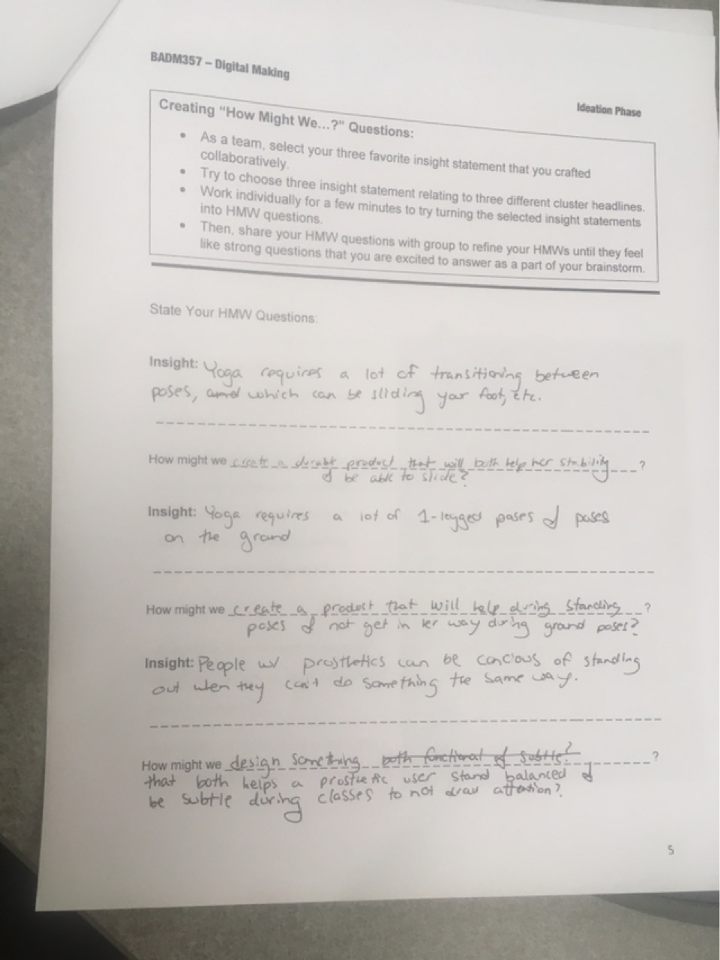 BADM357 – Digital Making
Ideation Phase
Creating "How Might We...?" Questions:
• As a team, select your three favorite insight statement that you crafted
collaboratively.
• Try to choose three insight statement relating to three different cluster headlines.
• Work individually for a few minutes to try turning the selected insight statements
into HMW questions.
• Then, share your HMW questions with group to refine your HMWs until they feel
like strong questions that you are excited to answer as a part of your brainstorm.
State Your HMW Questions:
Insight: Yoga requires a lot of transitioning between
poses, which can be sliding your foot, etc.
How might we create a durable product that will both help her stability ?
& be able to slide?
Insight: Yoga requires a lot of 1-legged poses & poses
on the ground
How might we create a product that will help during standing ?
poses & not get in her way during ground poses?
Insight: People w/ prosthetics can be concious of standing
out when they can't do something the same way.
How might we design something both functional & subtle? ?
that both helps a prosthetic user stand balanced &
be subtle during classes to not draw attention?
5